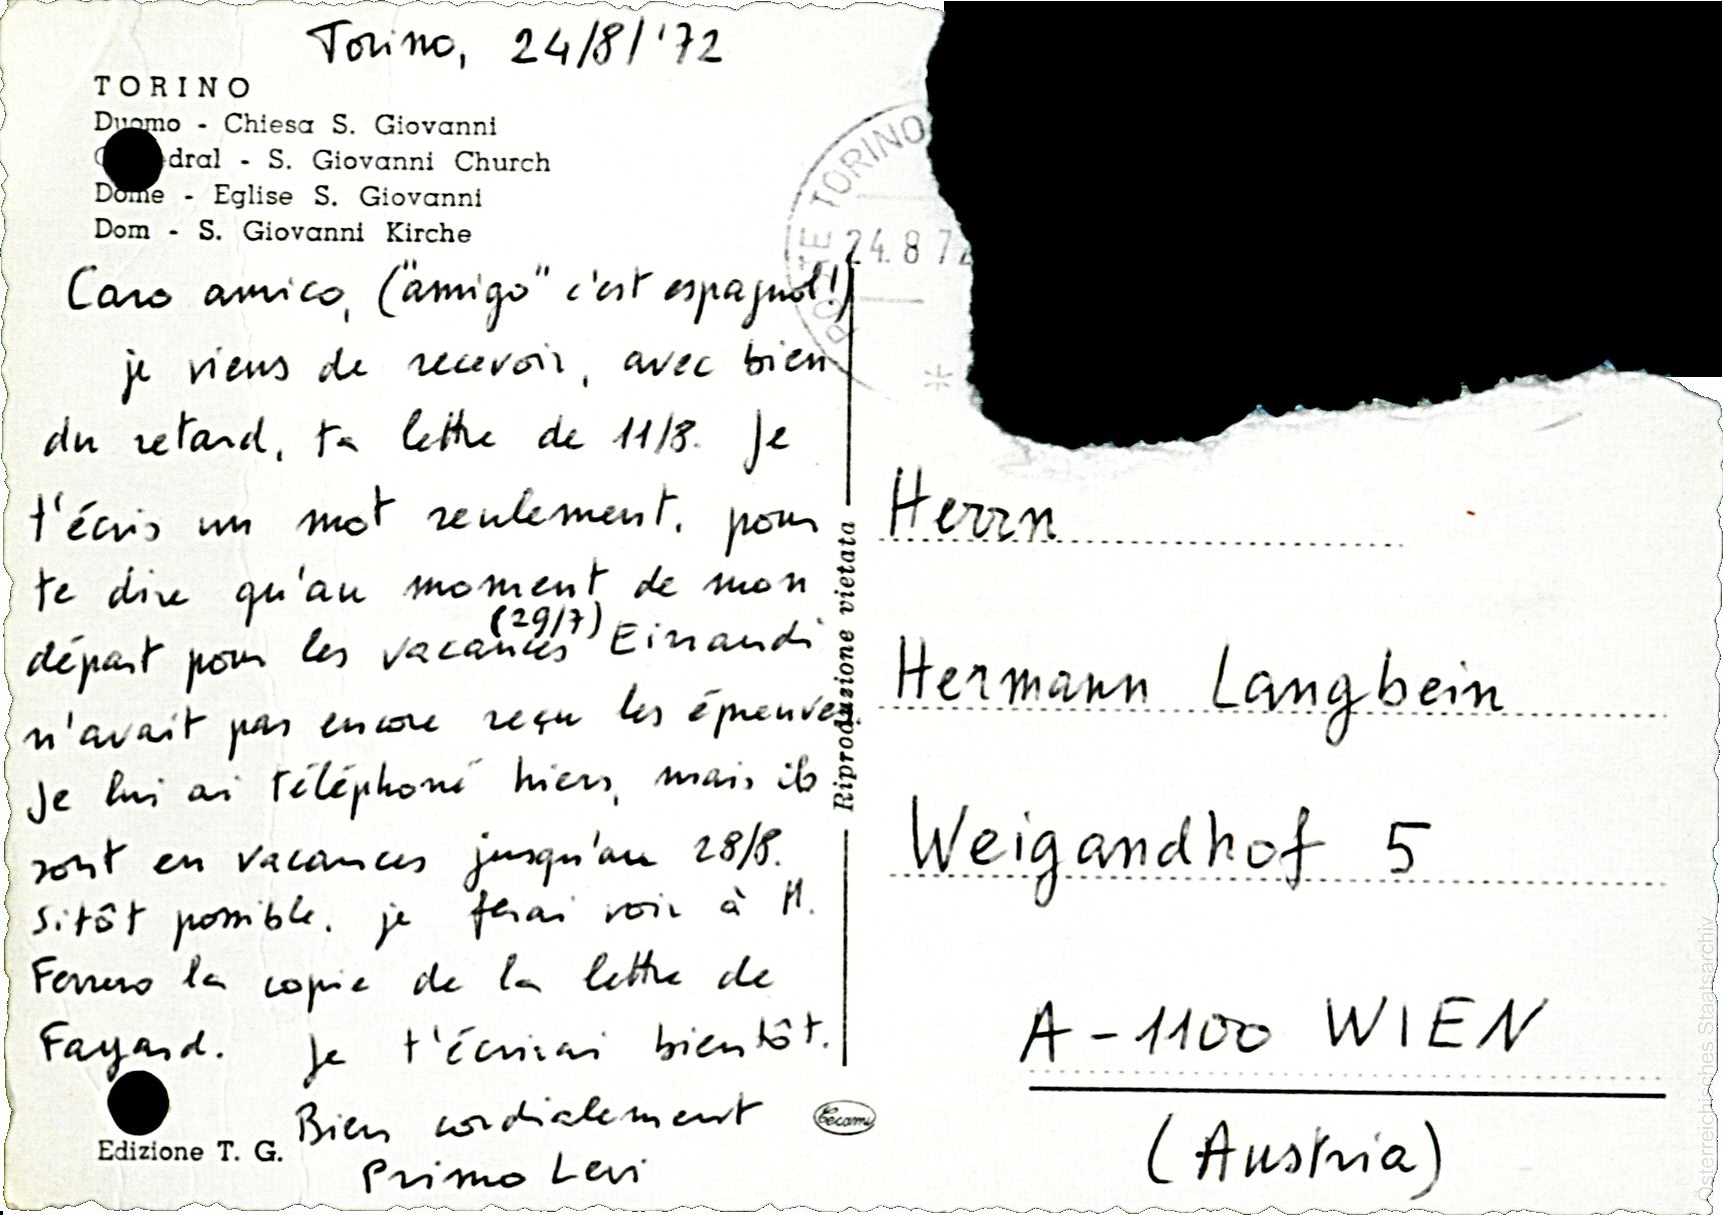 Torino, 24/8/'72
TORINO
Duomo - Chiesa S. Giovanni
dral - S. Giovanni Church
Dome - Eglise S. Giovanni
Dom - S. Giovanni Kirche
Caro amico, ("amigo" c'est espagnol!)
je viens de recevoir, avec bien
du retard, ta lettre de 11/8. Je
t'écris un mot seulement, pour
te dire qu'au moment de mon
départ pour les vacances (29/7) Einaudi
n'avait pas encore reçu les épreuves.
Je lui ai téléphoné hier, mais ils
sont en vacances jusqu'au 28/8.
Sitôt possible, je ferai voir à M.
Ferrero la copie de la lettre de
Fayard. Je t'écrirai bientôt.
Bien cordialement
Primo Levi
Edizione T. G.
Cecami
Riproduzione vietata
TORINO
24.8 72
Herrn
Hermann Langbein
Weigandhof 5
A-1100 WIEN
(Austria)
Österreichisches Staatsarchiv